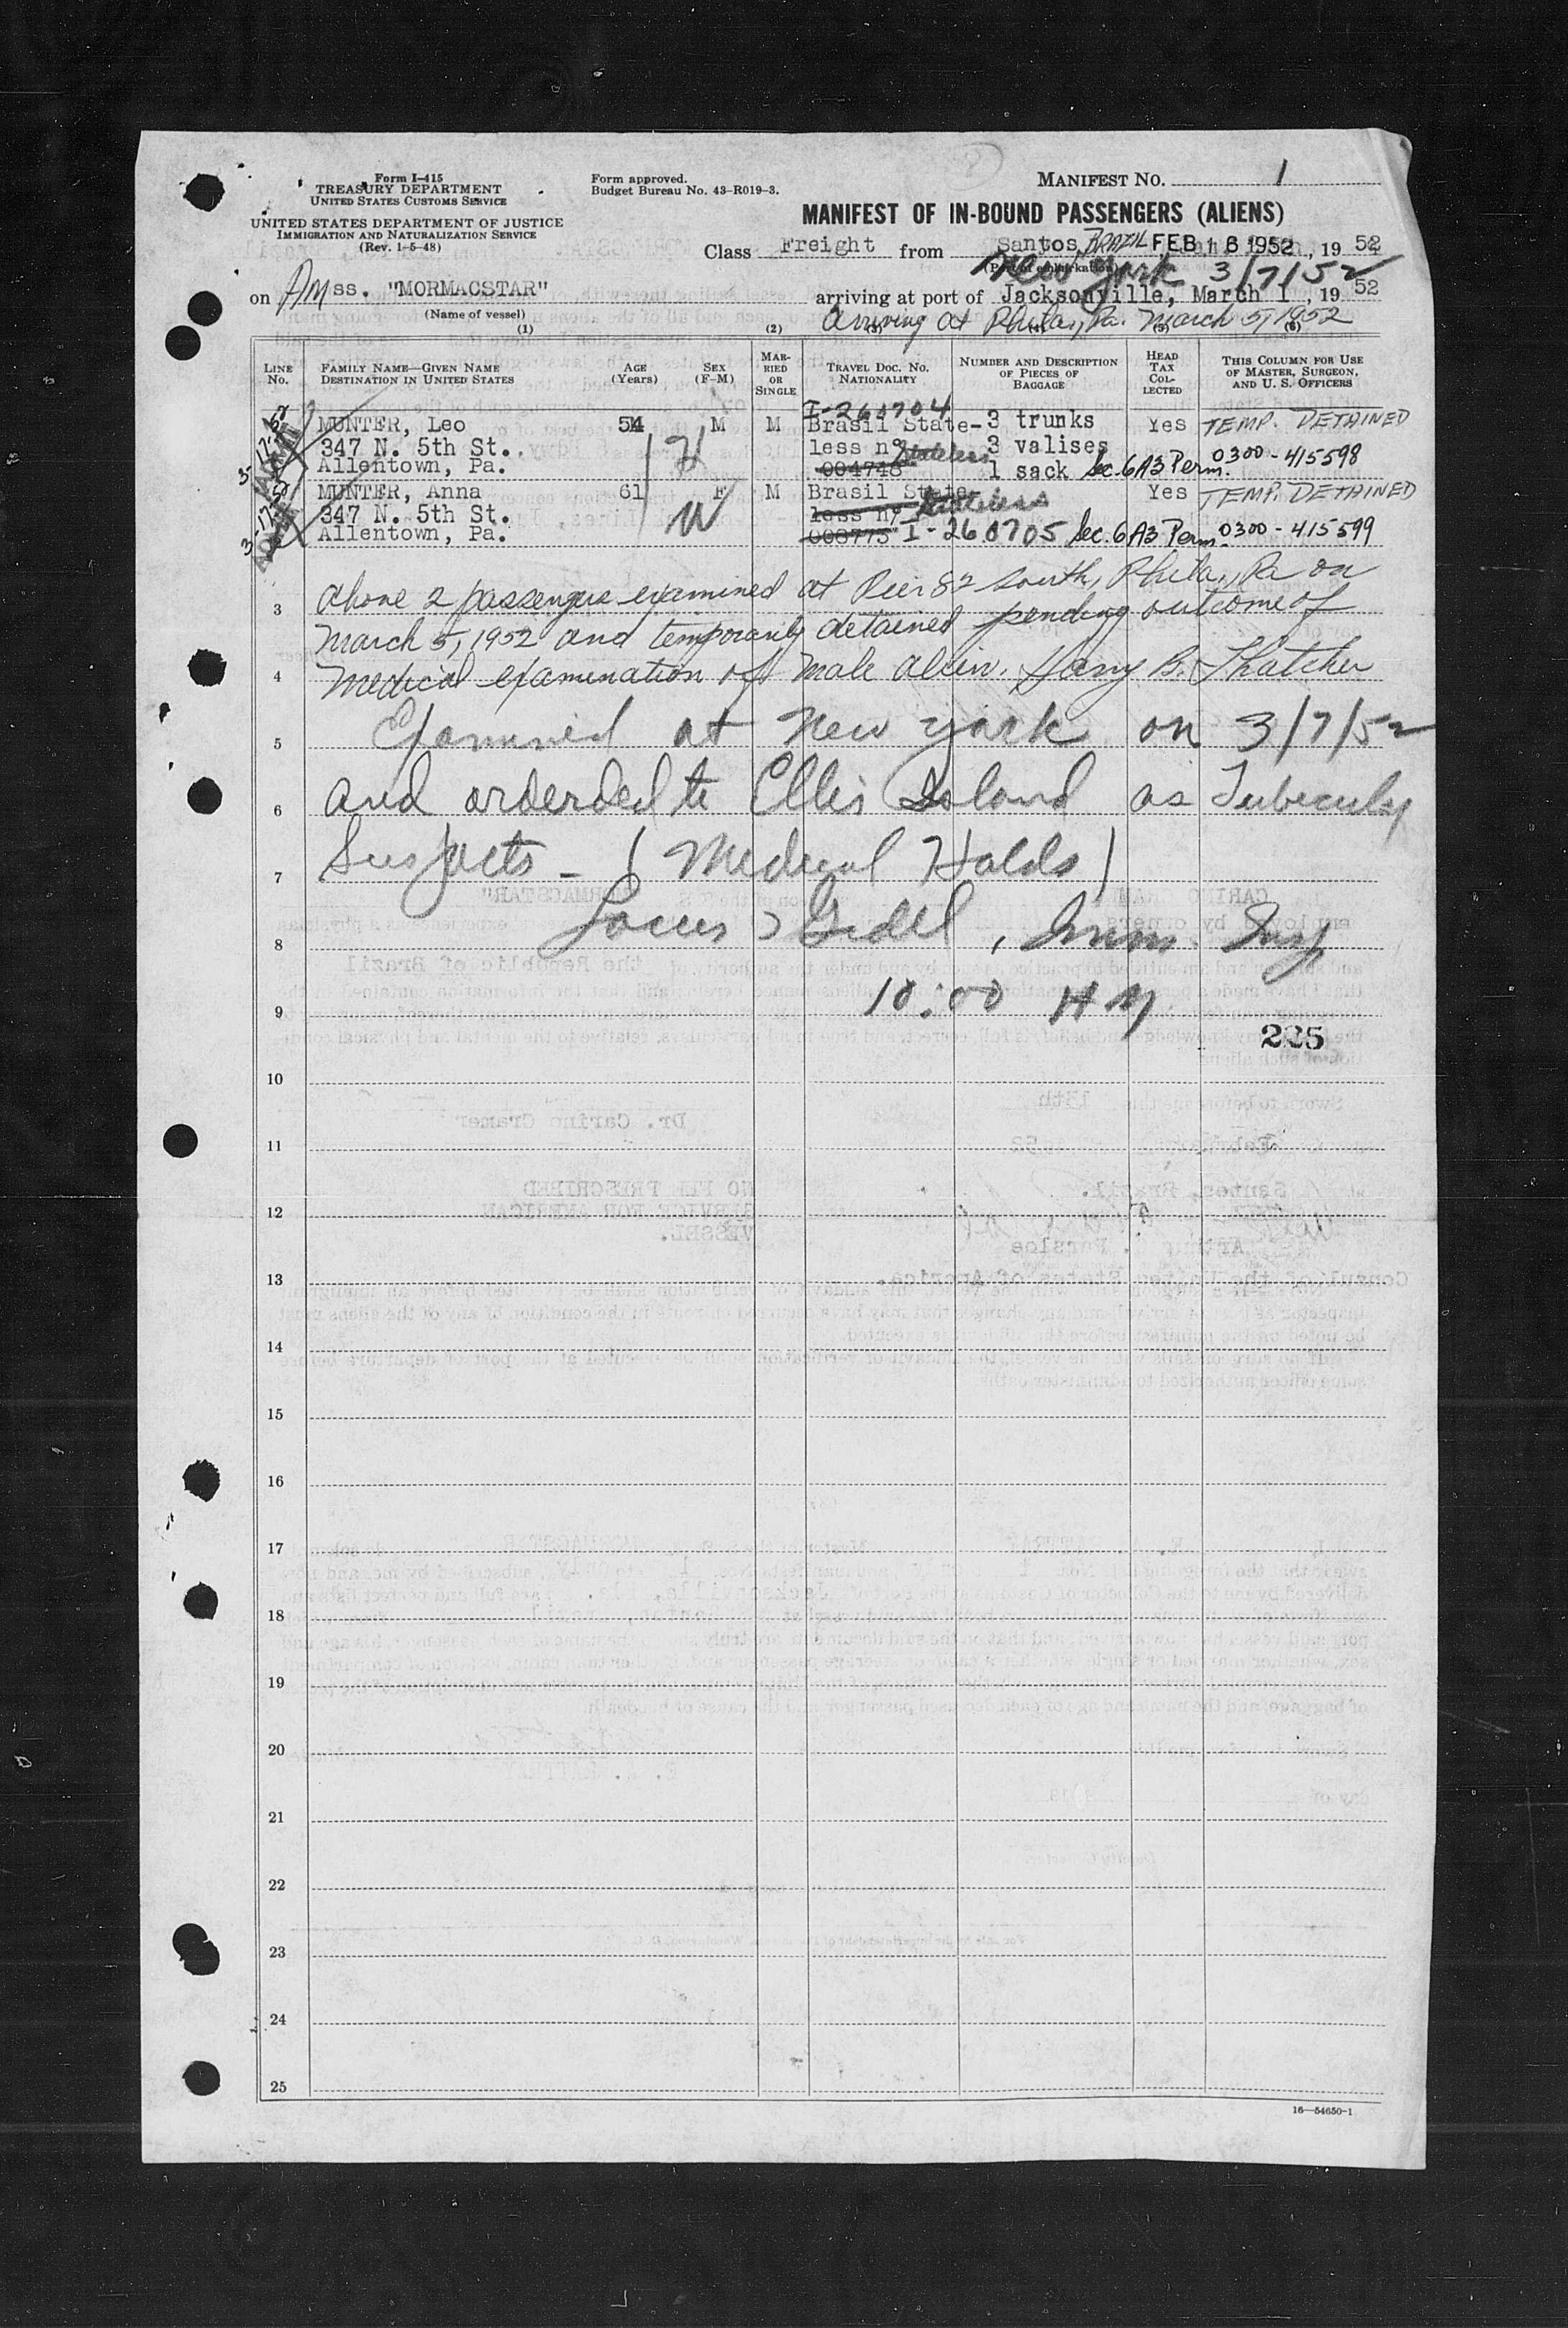 Form I-415
TREASURY DEPARTMENT
UNITED STATES CUSTOMS SERVICE
UNITED STATES DEPARTMENT OF JUSTICE
IMMIGRATION AND NATURALIZATION SERVICE
(Rev. 1-5-48)
Form approved.
Budget Bureau No. 43-R019-3.
MANIFEST NO. 1
MANIFEST OF IN-BOUND PASSENGERS (ALIENS)
Class Freight from Santos, BRAZIL FEB 16 1952, 19 52
(Port of embarkation)
New York 3/7/52
on AM ss. "MORMACSTAR" arriving at port of Jacksonville, March 1, 19 52
(Name of vessel)
Arriving at Phila., Pa. March 5, 1952
(1) (2) (3) (4) (5) (6)
LINE No. FAMILY NAME—GIVEN NAME DESTINATION IN UNITED STATES AGE (Years) SEX (F-M) MARRIED OR SINGLE TRAVEL DOC. NO. NATIONALITY NUMBER AND DESCRIPTION OF PIECES OF BAGGAGE HEAD TAX COLLECTED THIS COLUMN FOR USE OF MASTER, SURGEON, AND U. S. OFFICERS
I-260704
MUNTER, Leo 54 M M Brasil State- 3 trunks Yes TEMP. DETAINED
347 N. 5th St. H less nº Stateless 3 valises 0300-415598
Allentown, Pa. 004748 1 sack Sec. 6A3 Perm.
MUNTER, Anna 61 F M Brasil State Yes TEMP. DETAINED
347 N. 5th St. W less nº Stateless
Allentown, Pa. 008775 I-260705 Sec. 6A3 Perm. 0300-415599
3 Above 2 passengers examined at Pier 82 South, Phila., Pa on
March 5, 1952 and temporarily detained pending outcome of
4 Medical examination of male alien. Harry B. Thatcher
5 Examined at New York on 3/7/52
6 and orderded to Ellis Island as Tubeculy
7 Suspects - (Medical Holds)
8 Imm. Insp
9 10:00 AM
225
10
11
12
13
14
15
16
17
18
19
20
21
22
23
24
25
16—54650-1